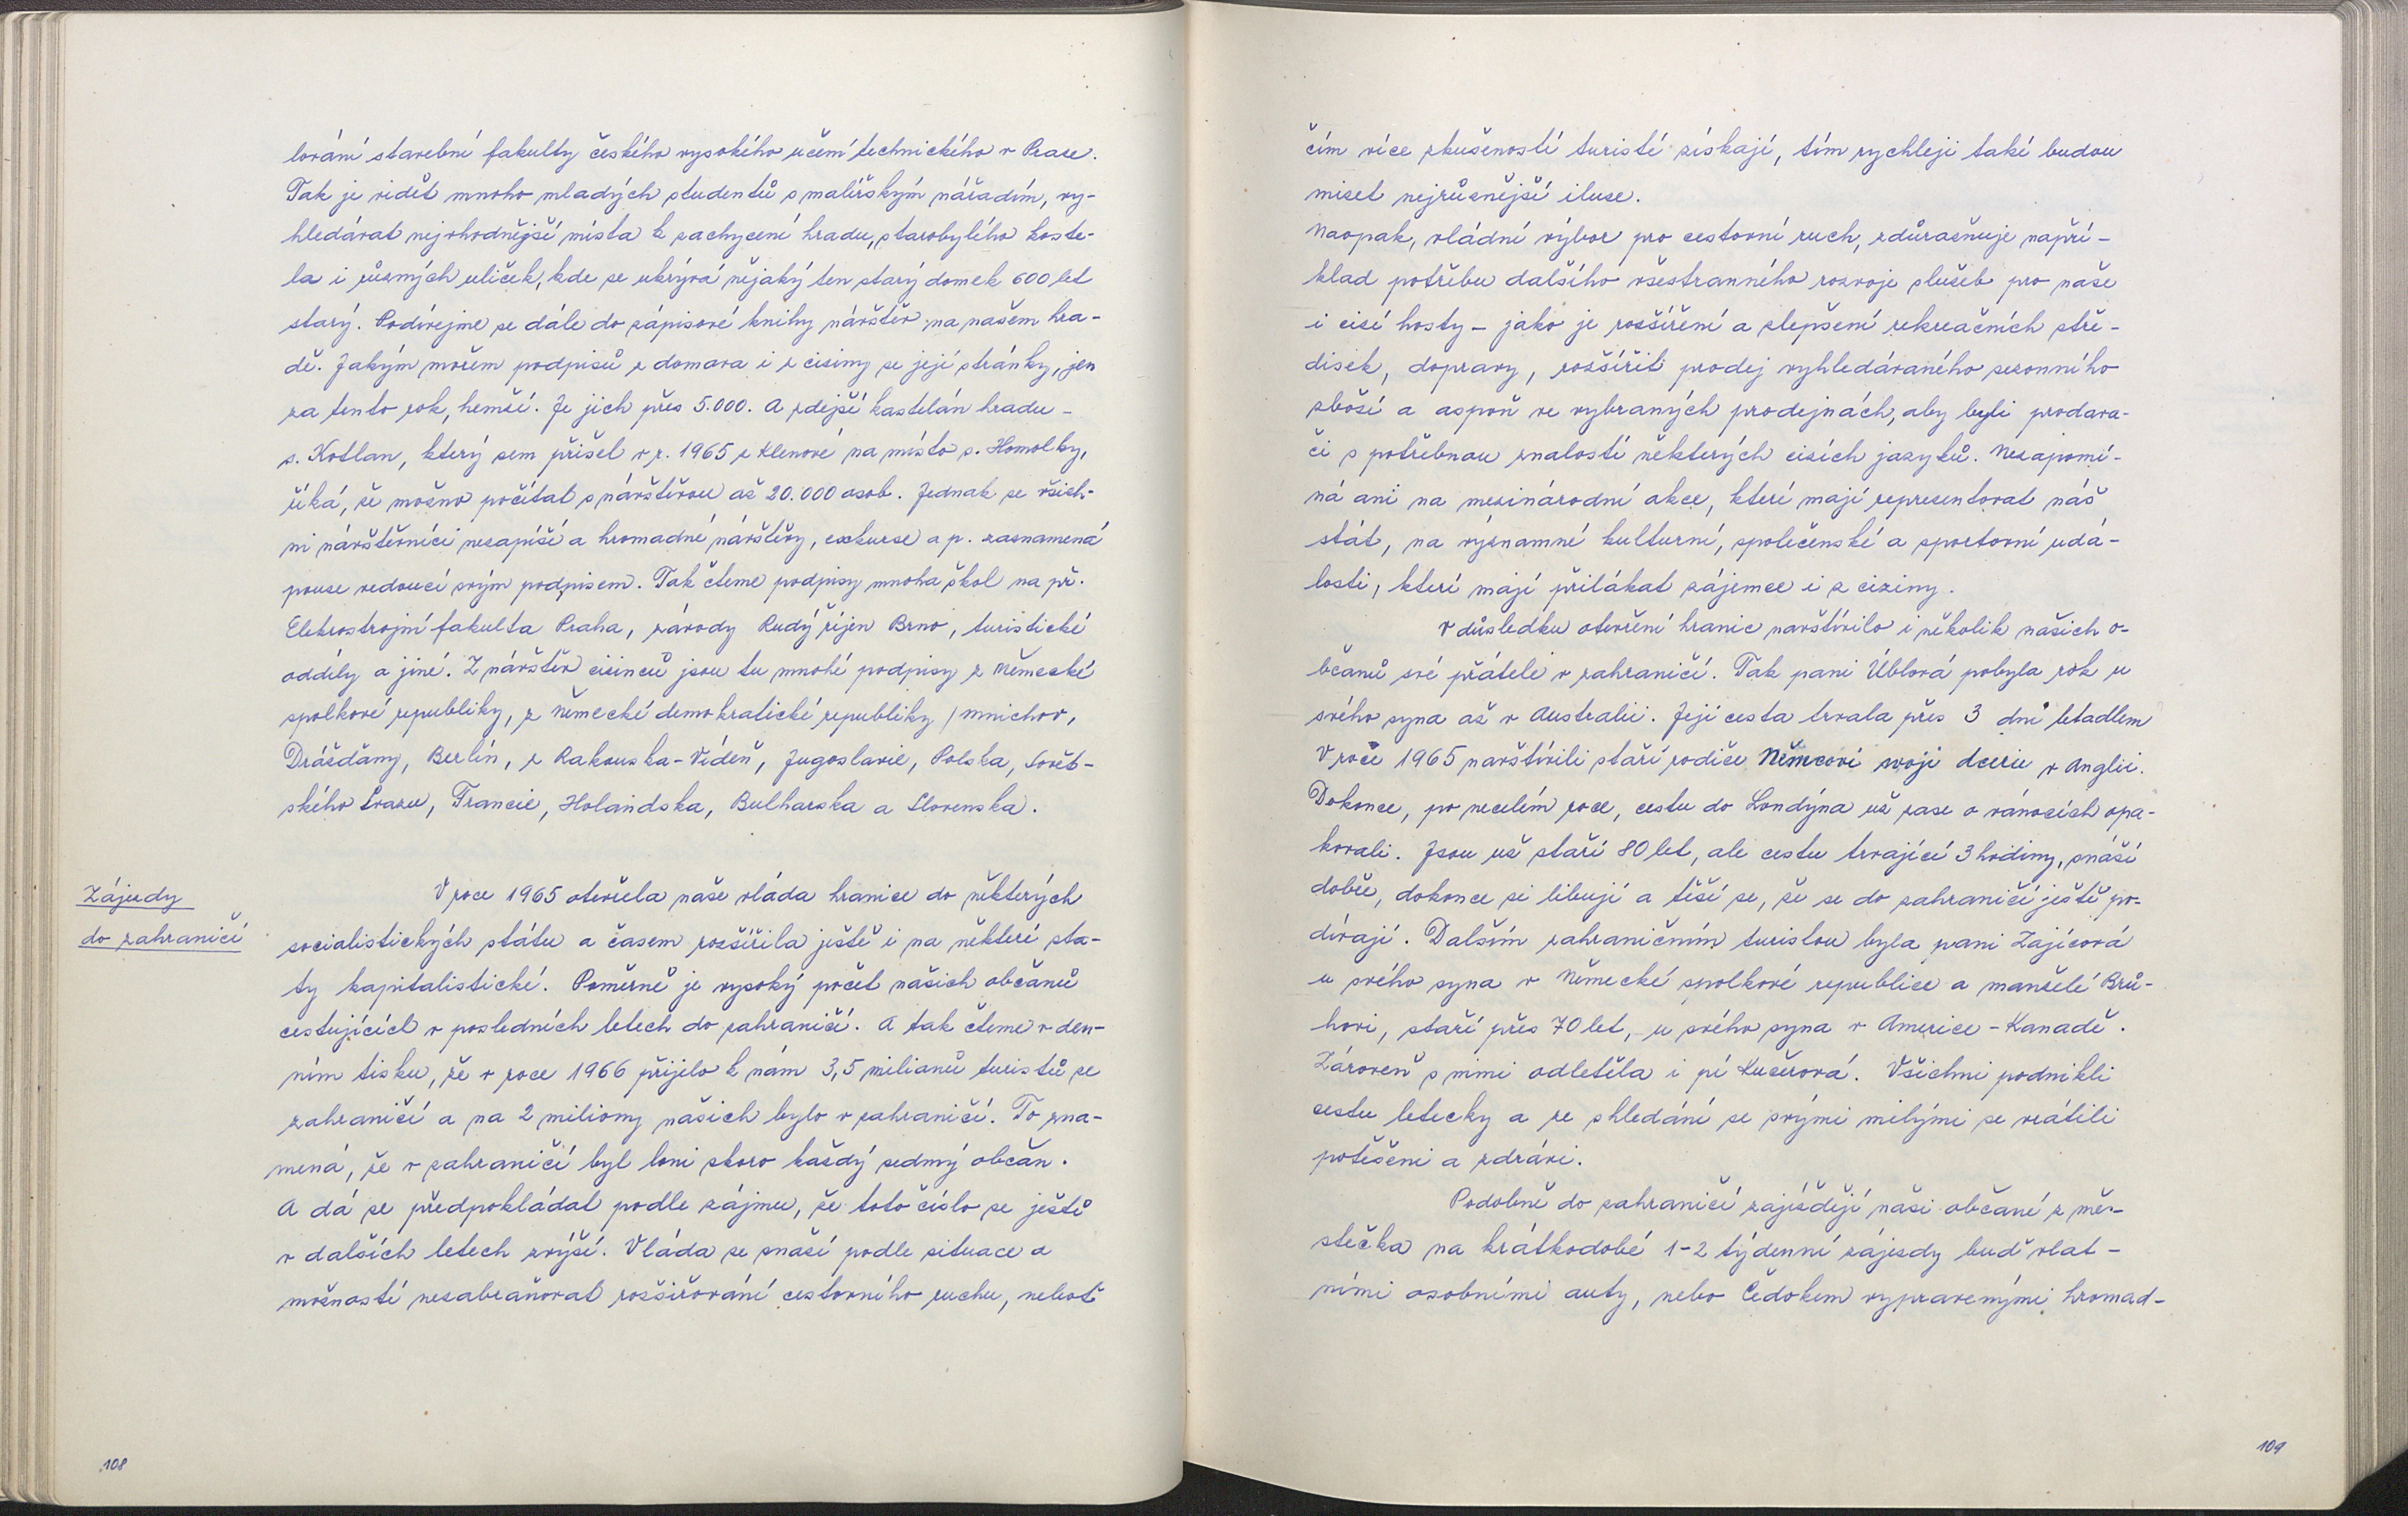 lování stavební fakulty českého vysokého učení technického v Praze.
Tak je vidět mnoho mladých studentů s malířským nářadím, vy-
hledávat nejvhodnější místa k zachycení hradu, starobylého koste-
la i různých uliček, kde se ukrývá nějaký ten starý domek 600 let
starý. Podívejme se dále do zápisové knihy návštěv na našem hra-
dě. Jakým mořem podpisů z domova i z ciziny se její stránky, jen
za tento rok, hemží. Je jich přes 5.000. A zdejší kastelán hradu -
s. Kotlan, který sem přišel v r. 1965 z Klenové na místo s. Homolky,
říká, že možno počítat s návštěvou až 20.000 osob. Jednak se všich-
ni návštěvníci nezapíší a hromadné návštěvy, exkurse a p. zaznamená
pouze vedoucí svým podpisem. Tak čteme podpisy mnoha škol na př.
Elektrostrojní fakulta Praha, závody Rudý říjen Brno, turistické
oddíly a jiné. Z návštěv cizinců jsou tu mnohé podpisy z Německé
spolkové republiky, z Německé demokratické republiky /Mnichov,
Drážďany, Berlín, z Rakouska-Vídeň, Jugoslavie, Polska, Sovět-
ského Svazu, Francie, Holandska, Bulharska a Slovenska.
Zájezdy
do zahraničí
V roce 1965 otevřela naše vláda hranice do některých
socialistických států a časem rozšířila ještě i na některé stá-
ty kapitalistické. Poměrně je vysoký počet našich občanů
cestujících v posledních letech do zahraničí. A tak čteme v den-
ním tisku, že v roce 1966 přijelo k nám 3,5 milionů turistů ze
zahraničí a na 2 miliony našich bylo v zahraničí. To zna-
mená, že v zahraničí byl loni skoro každý sedmý občan.
A dá se předpokládat podle zájmu, že toto číslo se ještě
v dalších letech zvýší. Vláda se snaží podle situace a
možností nezabraňovat rozšiřování cestovního ruchu, neboť
108
čím více zkušeností turisté získají, tím rychleji také budou
mizet nejrůznější iluse.
Naopak, vládní výbor pro cestovní ruch, zdůrazňuje napří-
klad potřebu dalšího všestranného rozvoje služeb pro naše
i cizí hosty - jako je rozšíření a zlepšení rekreačních stře-
disek, dopravy, rozšířit prodej vyhledávaného sezonního
zboží a aspoň ve vybraných prodejnách, aby byli prodava-
či s potřebnou znalostí některých cizích jazyků. Nezapomí-
ná ani na mezinárodní akce, které mají representovat náš
stát, na významné kulturní, společenské a sportovní udá-
losti, které mají přilákat zájemce i z ciziny.
V důsledku otevření hranic navštívilo i několik našich o-
bčanů své přátele v zahraničí. Tak paní Üblová pobyla rok u
svého syna až v Australii. Její cesta trvala přes 3 dní letadlem
V roce 1965 navštívili staří rodiče Němcovi svoji dceru v Anglii.
Dokonce, po necelém roce, cestu do Londýna už zase o vánocích opa-
kovali. Jsou už staří 80 let, ale cestu trvající 3 hodiny, snáší
dobře, dokonce si libují a těší se, že se do zahraničí ještě po-
dívají. Dalším zahraničním turistou byla paní Zajícová
u svého syna v Německé spolkové republice a manželé Brů-
hovi, staří přes 70 let, u svého syna v Americe - Kanadě.
Zároveň s nimi odletěla i pí Kučerová. Všichni podnikli
cestu letecky a ze shledání se svými milými se vrátili
potěšeni a zdrávi.
Podobně do zahraničí zajíždějí naši občané z měs-
stečka na krátkodobé 1-2 týdenní zájezdy buď vlat-
ními osobními auty, nebo Čedokem vypravenými hromad-
109